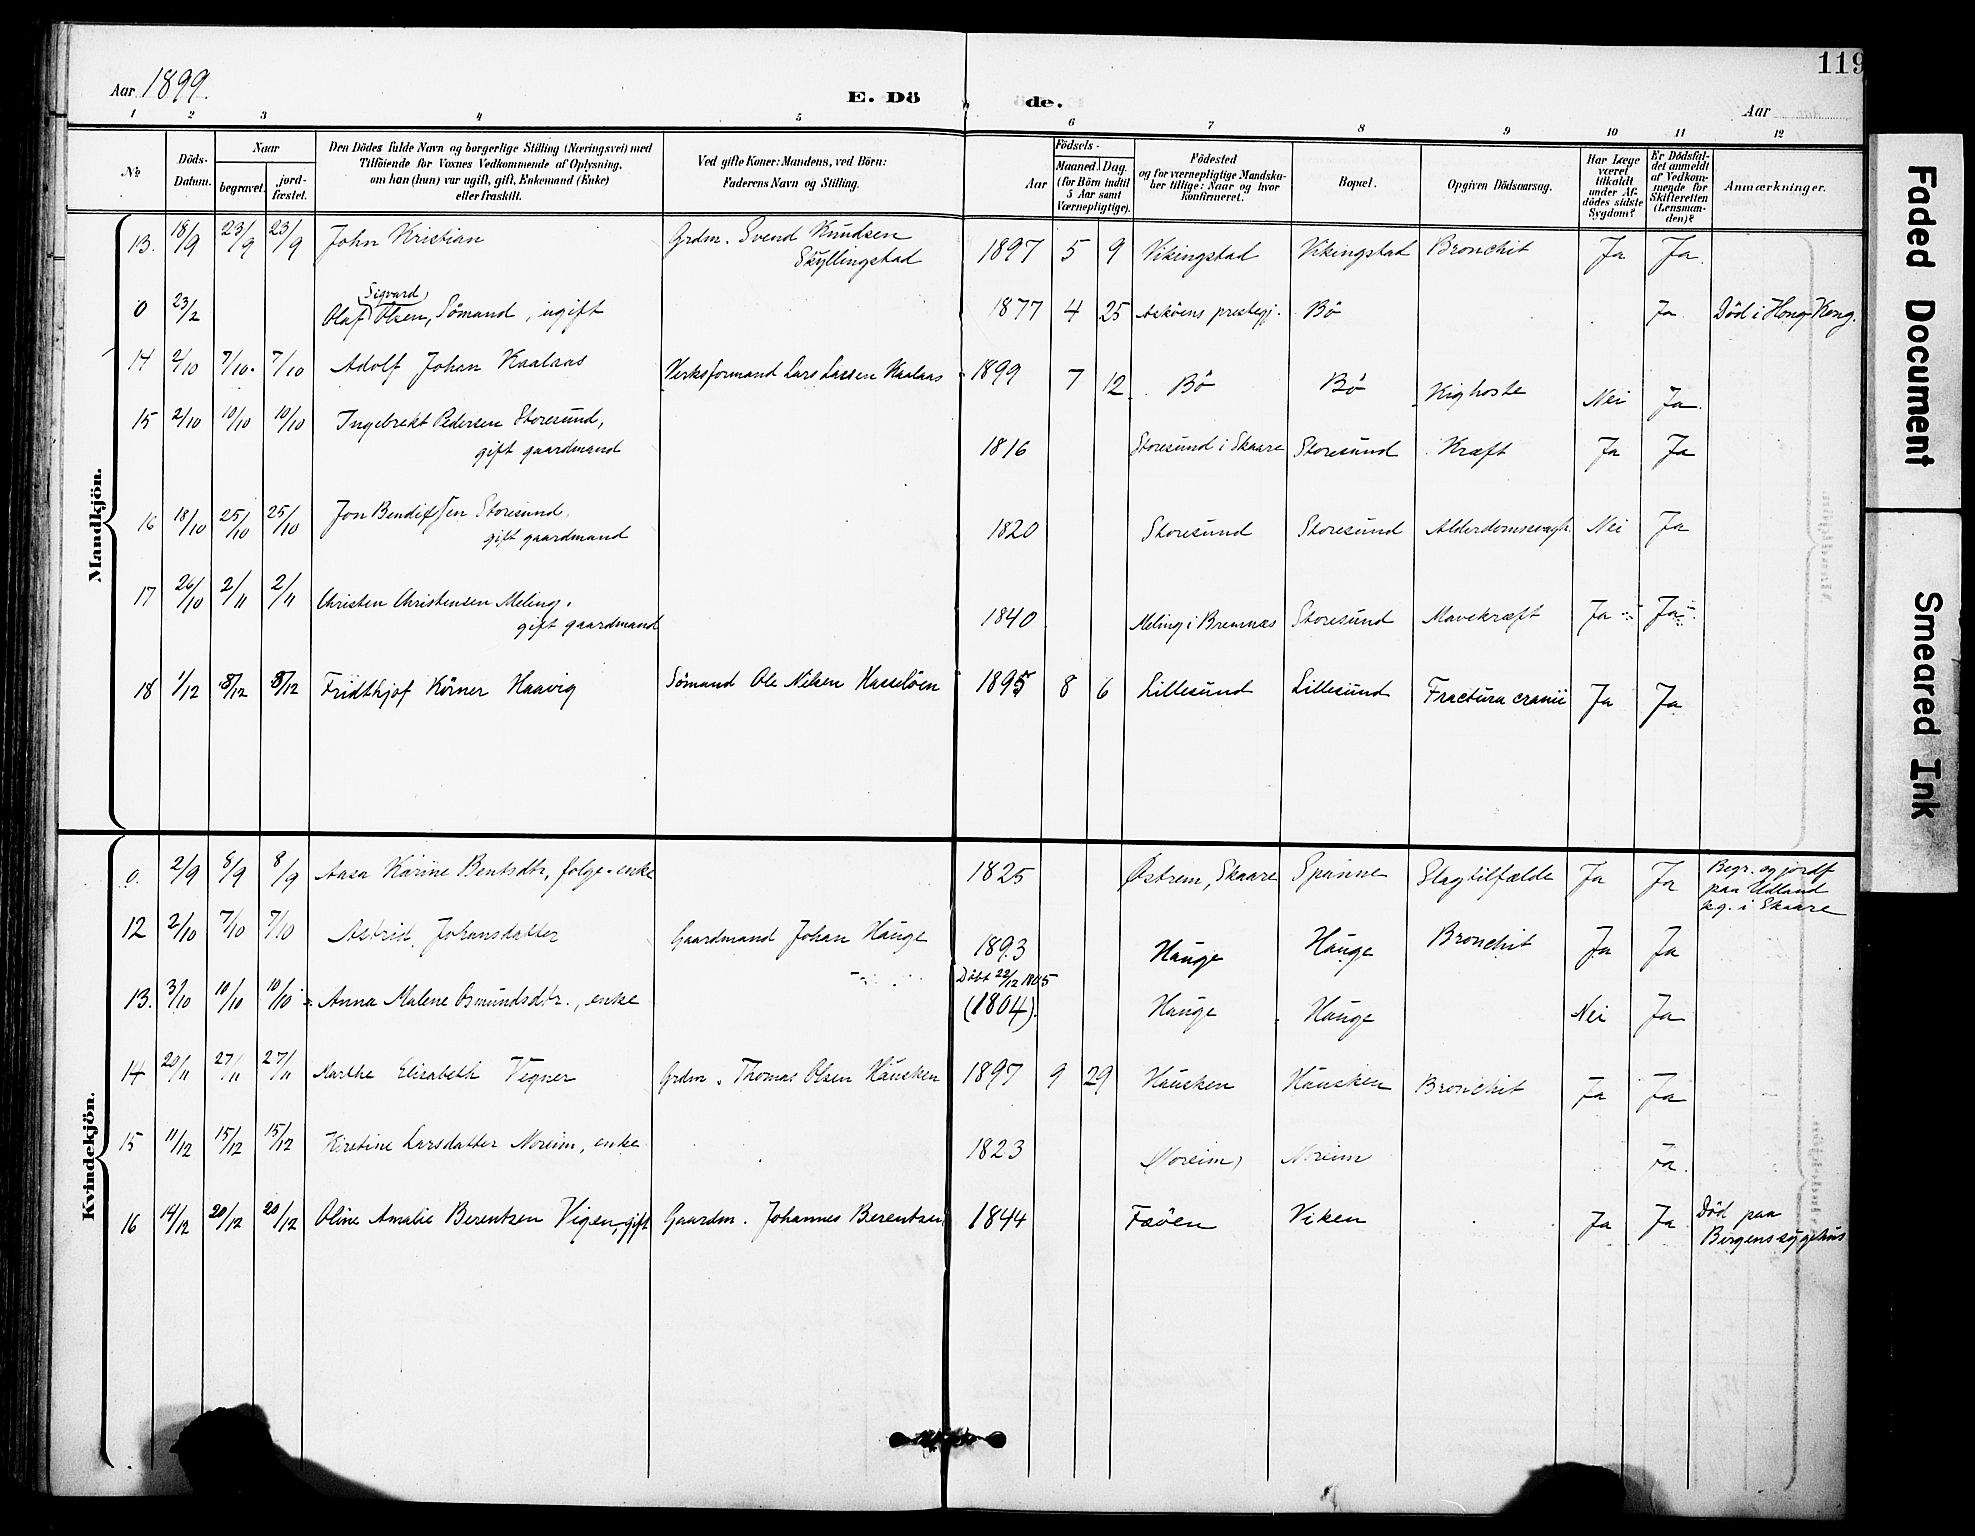 119
Aar 1899.
E. Dö
de.
Aar
1 2 3 4 5 6 7 8 9 10 11 12
№
Döds-Datum.
Naar
begravet.
jord-fæstet.
Den Dödes fulde Navn og borgerlige Stilling (Næringsvei) med
Tilföiende for Voxnes Vedkommende af Oplysning,
om han (hun) var ugift, gift, Enkemand (Enke)
eller fraskilt.
Ved gifte Koner: Mandens, ved Börn:
Faderens Navn og Stilling.
Födsels-
Aar
Maaned. Dag.
(for Börn indtil
5 Aar samt
Værnepligtige).
Födested
og for værnepligtige Mandska-
ber tillige: Naar og hvor
konfirmeret.
Bopæl.
Opgiven Dödsaarsag.
Har Læge
været
tilkaldt
under Af-
dödes sidste
Sygdom?
Er Dödsfal-
det anmeldt
af Vedkom-
mende for
Skifteretten
(Lensman-
den)?
Anmærkninger.
Mandkjön.
13. 18/9 23/9 23/9 John Kristian Grdm. Svend Knudsen 1897 5 9 Vikingstad Vikingstad Bronchit Ja Ja
Skyllingstad
Sigvard
0 23/2 Olaf Olsen, Sömand, ugift 1877 4 25 Askøens prestegj. Bö Ja Död i Hong Kong.
14 2/10 7/10 7/10 Adolf Johan Kaalaas Verksformand Lars Lassen Kaalaas 1899 7 12 Bö Bö Kighoste Nei Ja
15 2/10 10/10 10/10 Ingebrekt Pedersen Storesund,
gift gaardmand 1816 Storesund i Skaare Storesund Kræft Ja Ja
16 18/10 25/10 25/10 Jon Bendixsen Storesund,
gift gaardmand 1820 Storesund Storesund Alderdomssvagh. Nei Ja
17 26/10 2/11 2/11 Christen Christensen Meling,
gift gaardmand 1840 Meling i Bremnæs Storesund Mavekræft Ja Ja
18 1/12 8/12 8/12 Fridthjof Körner Haavig Sömand Ole Nilsen Hasselöen 1895 8 6 Lillesund Lillesund Fractura cranii Ja Ja
Kvindekjön.
0. 2/9 8/9 8/9 Aasa Karine Bentsdtr, folge-enke 1825 Østrem, Skaare Spanne Slagtilfælde Ja Ja Begr. og jordf
paa Udland
kg. i Skaare
12 2/10 7/10 7/10 Astrid Johansdatter Gaardmand Johan Hauge 1893 Hauge Hauge Bronchit Ja Ja
Döbt 22/12 1805
13. 3/10 10/10 10/10 Anna Malene Osmundsdtr., enke (1804). Hauge Hauge Nei Ja
14 20/11 27/11 27/11 Marthe Elisabeth Vegner Grdm. Thomas Olsen Hausken 1897 9 29 Hausken Hausken Bronchit Ja Ja
15 11/12 15/12 15/12 Kirstine Larsdatter Noreim, enke 1823 (Noreim) Noreim Ja
16 14/12 20/12 20/12 Oline Amalie Berentsen Vigen, gift Gaardm. Johannes Berentsen 1844 Fæöen Viken Ja Ja Död paa
Bergens sygehus
Faded Document
Smeared Ink